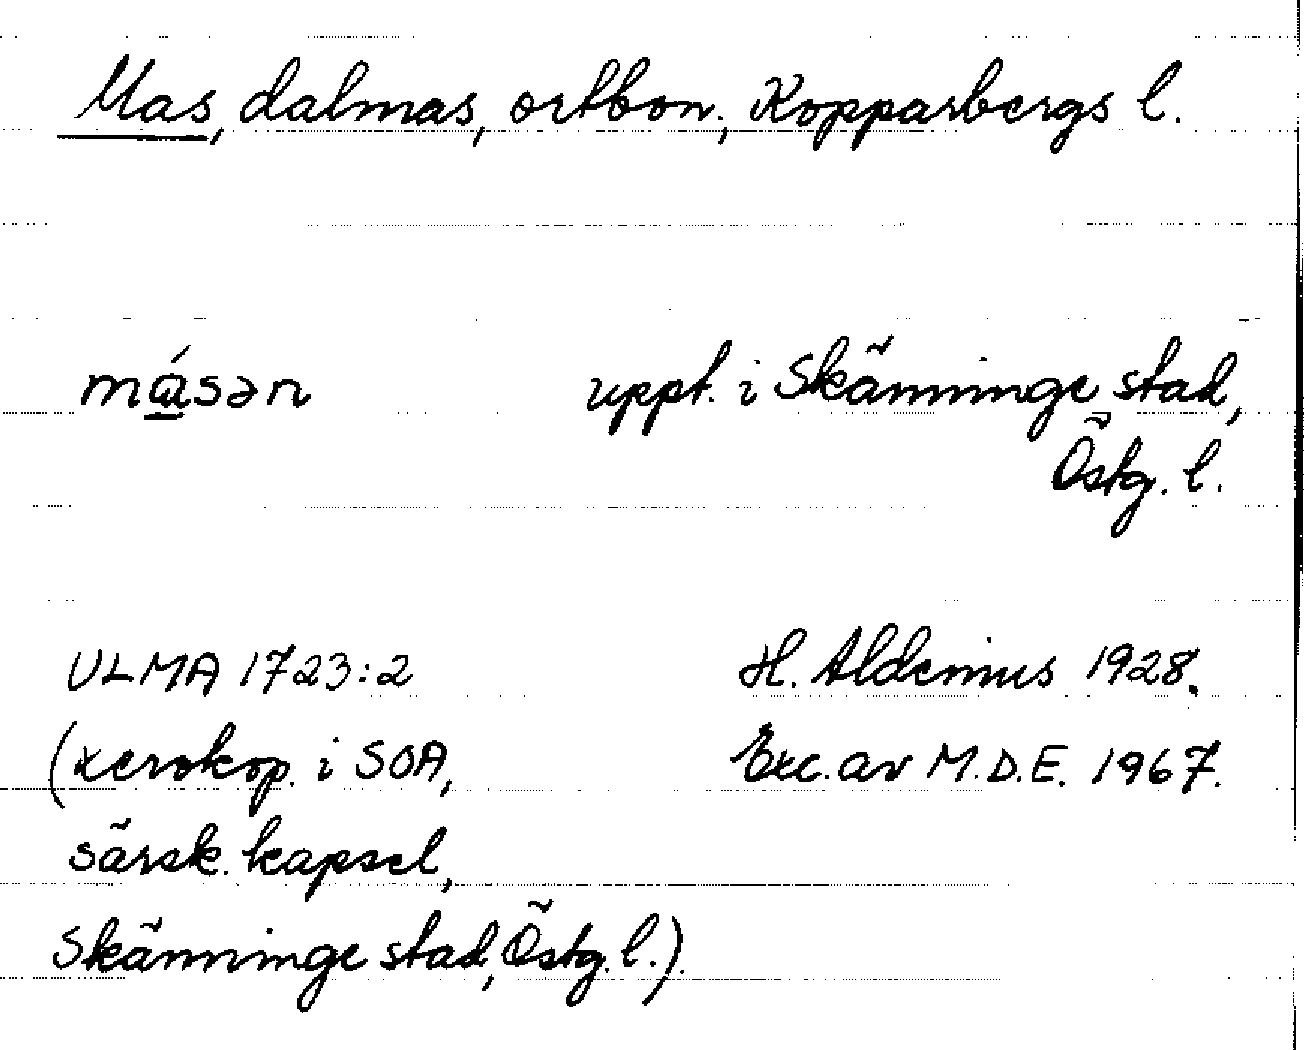 Mas, dalmas, ortbon., Kopparbergs l.
mɑ́sən uppt. i Skänninge stad,
Östg. l.
ULMA 1723:2 H. Aldenius 1928.
(xerokop. i SOA, Exc. av M.D.E. 1967.
särsk. kapsel,
Skänninge stad, Östg. l.).